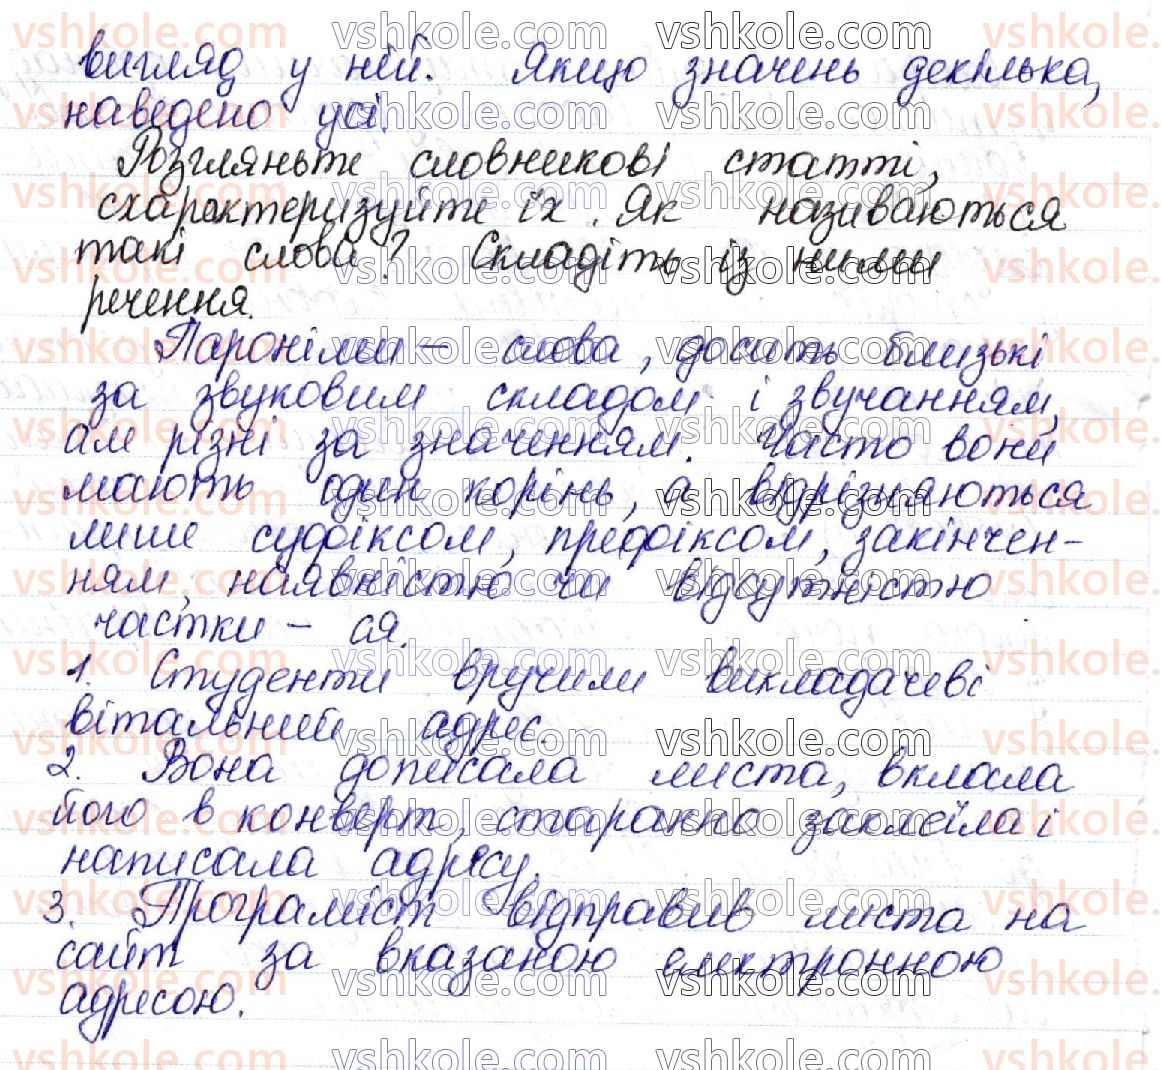 вигляд у ній. Якщо значень декілька,
наведено усі.
Розгляньте словникові статті,
схарактеризуйте їх. Як називаються
такі слова? Складіть із ними
речення.
Пароніми – слова, досить близькі
за звуковим складом і звучанням,
ам різні за значенням. Часто вони
мають один корінь, а відрізняються
лише суфіксом, префіксом, закінчен-
ням, наявністю чи відсутністю
частки – ся.
1. Студенти вручили викладачеві
вітальний адрес.
2. Вона дописала листа, вклала
його в конверт, старанно заклеїла і
написала адресу.
3. Програміст відправив листа на
сайт за вказаною електронною
адресою.